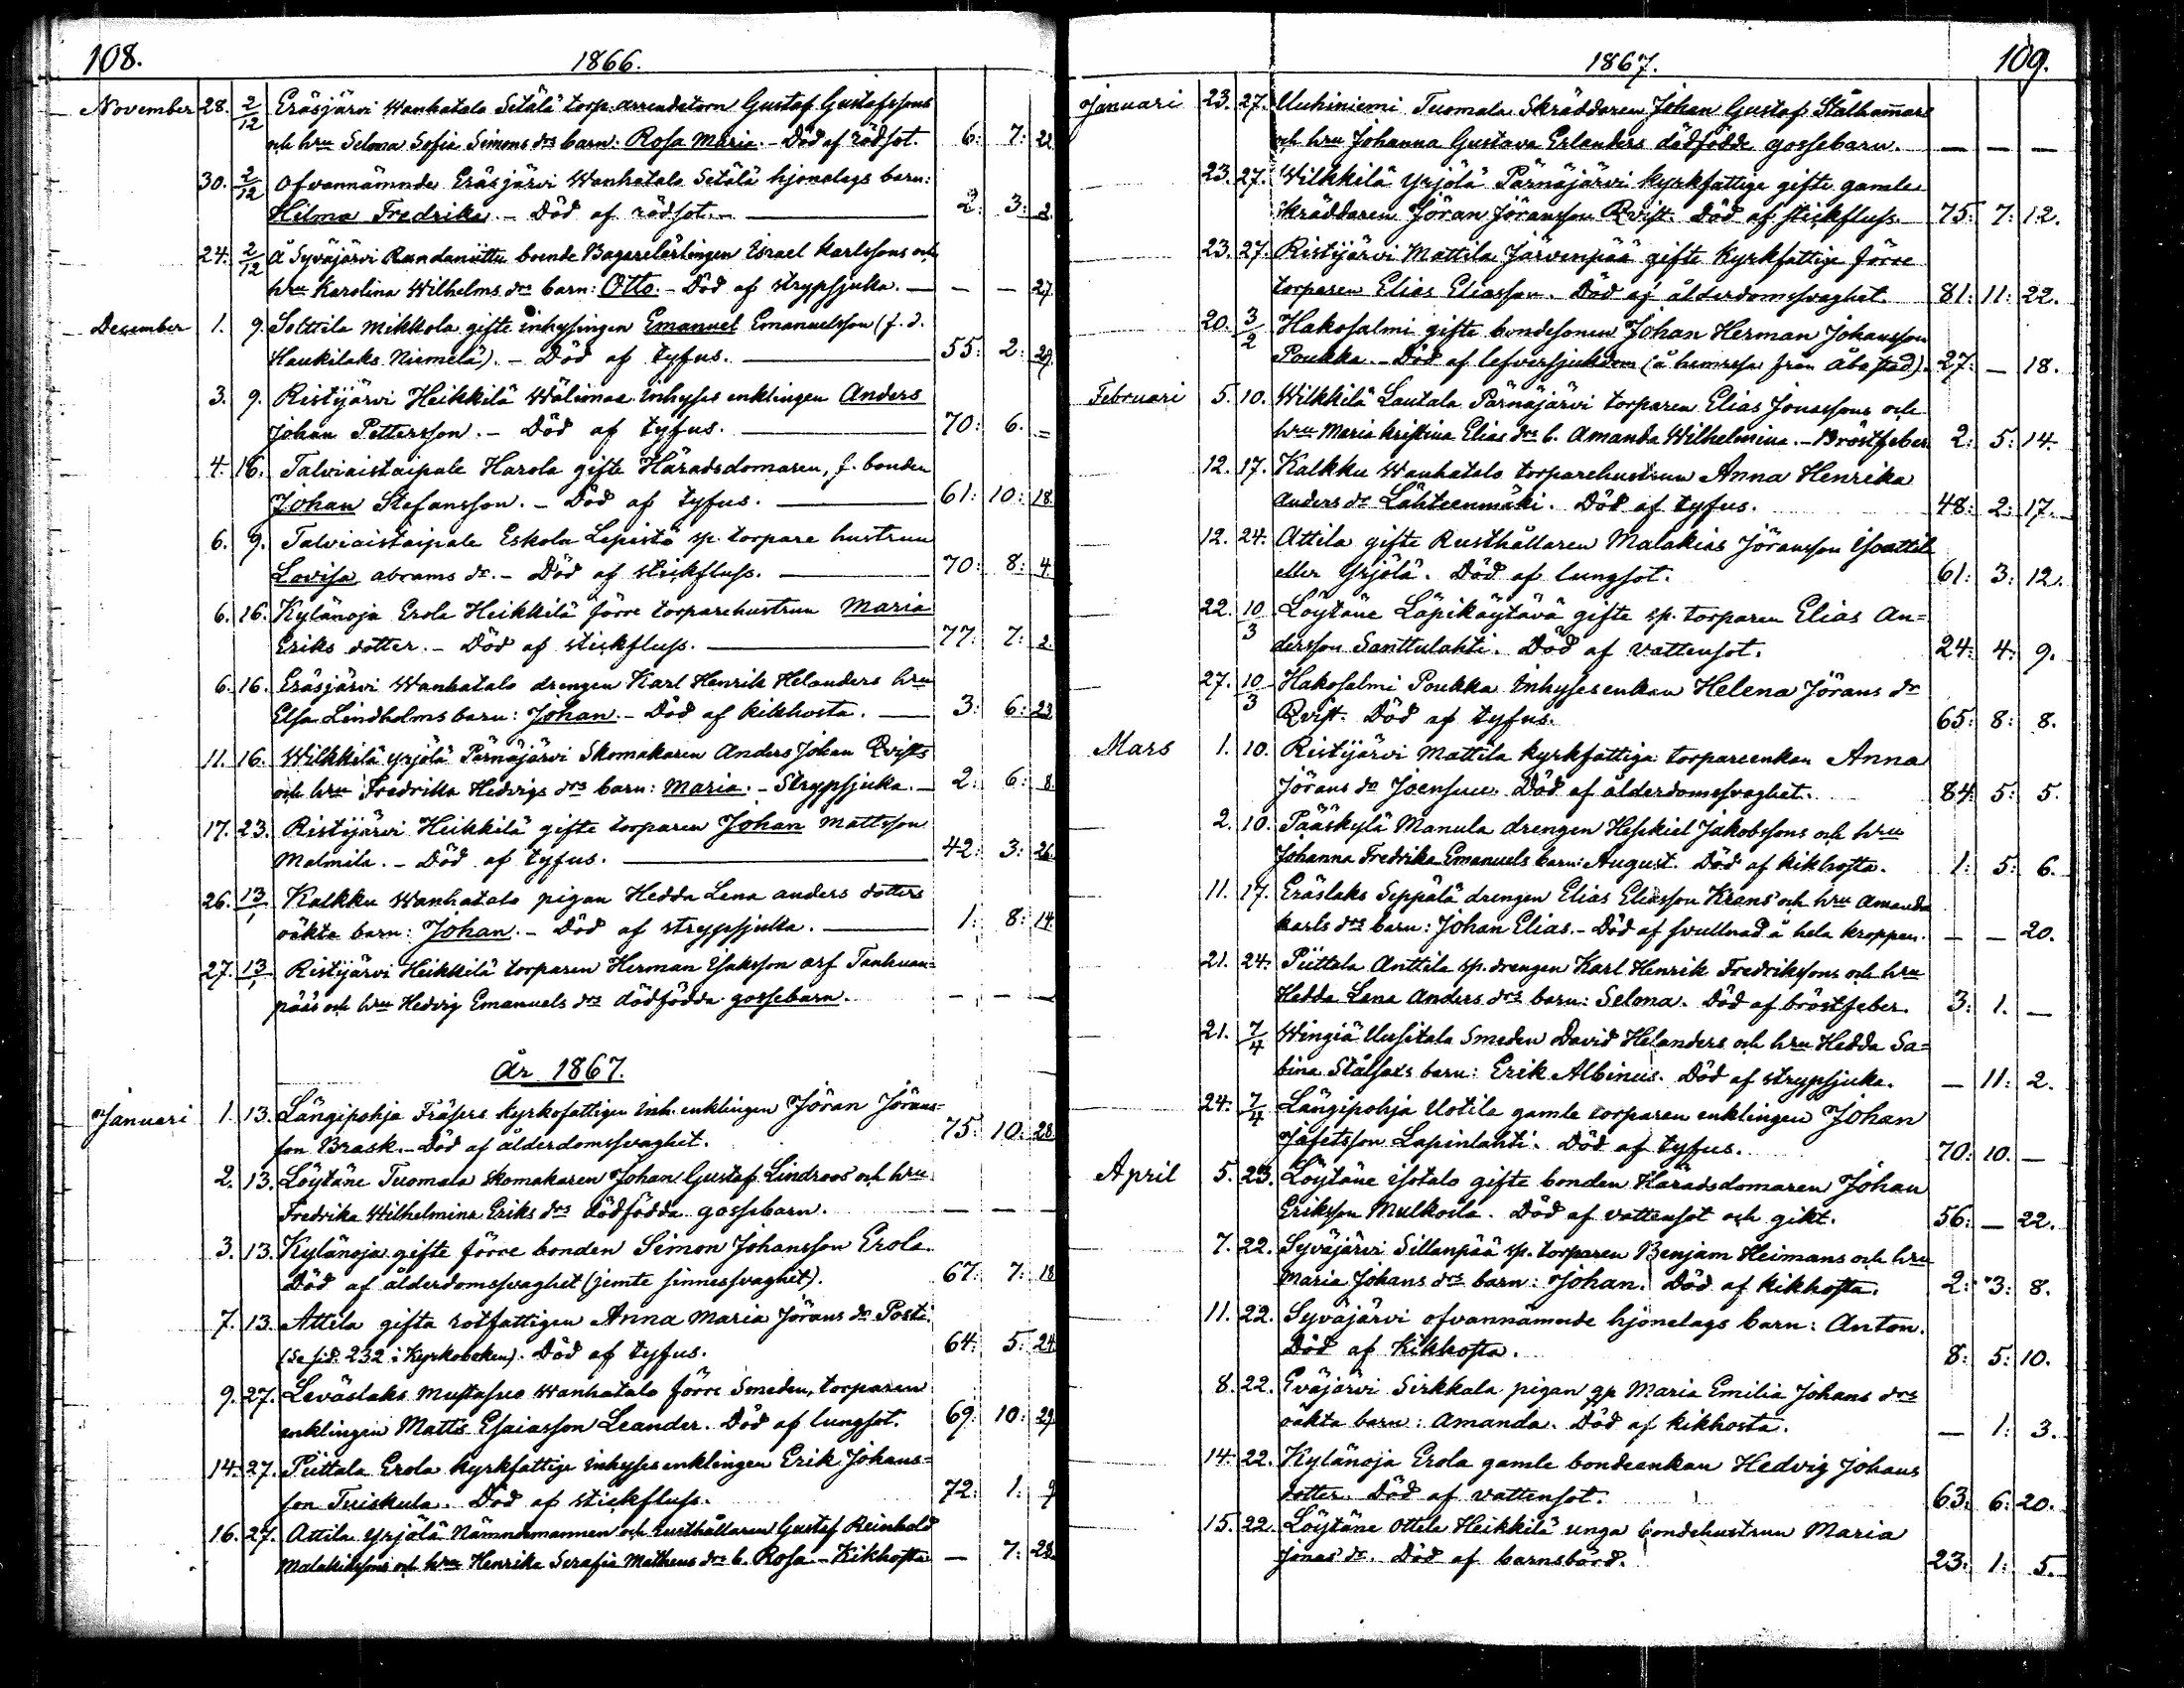 108.
1866.
November 28. 2/12 Eräsjärvi Wanhatalo Setälä torp. arrendatorn Gustaf Gustafssons
och hru Selma Sofia Simons drs barn: Rosa Maria. - Död af rödsot. 6: 7: 22
30. 2/12 Ofvannämnde Eräsjärvi Wanhatalo Setälä hjonelags barn:
Hilma Fredrika. - Död af rödsot. - 2: 3: 2.
24. 2/12 Å Syväjärvi boende Bagarelärlingen Israel Karlssons och
hru Karolina Wilhelms drs barn: Otto. - Död af strypsjuka. - - - 27
December 1. 9. Solttila Mikkola gifte inhysingen Emanuel Emanuelsson (f. d.
Haukilaks Niemelä). - Död af tyfus. 55: 2: 29.
3. 9. Ristijärvi Heikkilä Wälimaa inhyses enklingen Anders
Johan Pettersson. - Död af tyfus. 70: 6. =
4. 16. Talviaistaipale Harola gifte Häradsdomaren, f. bonden
Johan Stefansson. - Död af tyfus. 61: 10: 18.
6. 9. Talviaistaipale Eskola Lepistö sp. torpare hustrun
Lovisa Abrams dr. - Död af stickfluss. 70: 8: 4
6. 16. Kylänoja Erola Heikkilä förre torparehustrun Maria
Eriks dotter. - Död af stickfluss. 77: 7: 2.
6. 16. Eräsjärvi Wanhatalo drengen Karl Henrik Helanders hru
Elsa Lindholms barn: Johan. - Död af kikhosta. 3: 6: 23.
11. 16. Wilkkilä Yrjölä Pärnäjärvi Skomakaren Anders Johan Qvists
och hru Fredrika Hedvigs drs barn: Maria. - Strypsjuka. - 2: 6: 8.
17. 23. Ristijärvi Heikkilä gifte torparen Johan Mattsson
Malmila. - Död af tyfus. 42: 3: 26.
26. 13/1 Kalkku Wanhatalo pigan Hedda Lena Anders dotters
oäkta barn: Johan. - Död af strypsjuka. 1: 8: 14.
27. 13/1 Ristijärvi Heikkilä torparen Herman Isaksson arf Tanhuan=
pää och hru Hedvig Emanuels drs dödfödda gossebarn. - - -
År 1867.
Januari 1. 13. Längipohja Fräsers kyrkofattigen inh. enklingen Jöran Jörans=
son Brask. - Död af ålderdomssvaghet. 75: 10: 28.
2. 13. Löytäne Tuomala skomakaren Johan Gustaf Lindroos och hru
Fredrika Wilhelmina Eriks drs dödfödda gossebarn. - - -
3. 13. Kylänoja gifte förre bonden Simon Johansson Erola.
Död af ålderdomssvaghet (jemte sinnessvaghet). 67: 7: 18
7. 13. Attila gifta rotfattigen Anna Maria Jörans dr Posti.
(se sid. 232 i Kyrkoboken). Död af tyfus. 64: 5: 24
9. 27. Leväslaks Mustasuo Wanhatalo förre Smeden, torparen
enklingen Matts Esaiasson Leander. Död af lungsot. 69: 10: 29
14. 27. Piittala Erola kyrkfattige inhyses enklingen Erik Johans=
son Tuiskula. Död af stickfluss. 72: 1: 9
16. 27. Attila Yrjölä Nämndemannen och rusthållaren Gustaf Reinhold
Malakiassons och hru Henrika Serafia Matheus drs b. Rosa. - Kikhosta - 7: 28.
1867.
109.
Januari 23. 27. Uuhiniemi Tuomala Skräddaren Johan Gustaf Stålhamars
och hru Johanna Gustava Erlanders dödfödde gossebarn. - - -
23. 27. Wilkkilä Yrjölä Pärnäjärvi kyrkfattige gifte gamle
skräddaren Jöran Jöransson Qvist. Död af stickfluss. 75: 7: 12.
23. 27. Ristijärvi Mattila Järvenpää gifte kyrkfattige förre
torparen Elias Eliasson. Död af ålderdomssvaghet. 81: 11: 22.
20. 3/2 Hakosalmi gifte bondesonen Johan Herman Johansson
Poukka. - Död af lefversjukdom (å hemresa från Åbo stad). 27: - 18.
Februari 5. 10. Wilkkilä Lautala Pärnäjärvi torparen Elias Jonassons och
hru Maria Kristina Elias drs b. Amanda Wilhelmina. - Bröstfeber 2: 5: 14.
12. 17. Kalkku Wanhatalo torparehustrun Anna Henrika
Anders dr Lähteenmäki. Död af tyfus. 48: 2: 17.
12. 24. Attila gifte Rusthållaren Malakias Jöransson Isoattila
eller Yrjölä. Död af lungsot. 61: 3: 12.
22. 10/3 Löytäne Läpikäytävä gifte sp. torparen Elias An=
dersson Santtulahti. Död af vattensot. 24: 4: 9.
27. 10/3 Hakosalmi Poukka inhysesenkan Helena Jörans dr
Qvist. Död af tyfus. 65: 8: 8.
Mars 1. 10. Ristijärvi Mattila kyrkfattiga torpareenkan Anna
Jörans dr Joensuu. Död af ålderdomssvaghet. 84: 5: 5.
2. 10. Pääskylä Manula drengen Heskiel Jakobssons och hru
Johanna Fredrika Emanuels barn: August. Död af kikhosta. 1: 5: 6.
11. 17. Eräslaks Seppälä drengen Elias Eliasson Krans och hru Amanda
Karls drs barn: Johan Elias. - Död af svullnad å hela kroppen. - - 20.
21. 24. Piittala Anttila sp. drengen Karl Henrik Fredrikssons och hru
Hedda Lena Anders drs barn: Selma. Död af bröstfeber. 3: 1. -
21. 7/4 Wingiä Uusitalo Smeden David Helanders och hru Hedda Sa=
bina barn: Erik Albinus. Död af strypsjuka. - 11: 2.
24. 7/4 Längipohja Uotila gamle torparen enklingen Johan
Jafetsson Lapinlahti. Död af tyfus. 70: 10. -
April 5. 23. Löytäne Isotalo gifte bonden Häradsdomaren Johan
Eriksson Mulkoila. Död af vattensot och gikt. 56: - 22.
7. 22. Syväjärvi Sillanpää sp. torparen Benjam Heimans och hru
Maria Johans drs barn: Johan. Död af kikhosta. 2: 3: 8.
11. 22. Syväjärvi ofvannämnde hjonelags barn: Anton.
Död af Kikhosta. 8: 5: 10.
8. 22. Eväjärvi Sirkkala pigan Maria Emilia Johans drs
oäkta barn: Amanda. Död af kikhosta. - 1: 3.
14. 22. Kylänoja Erola gamle bondeenkan Hedvig Johans
dotter. Död af vattensot. 63: 6: 20.
15. 22. Löytäne Ottela Heikkilä unga bondehustrun Maria
Jonas dr. Död af barnsbörd. 23: 1: 5.